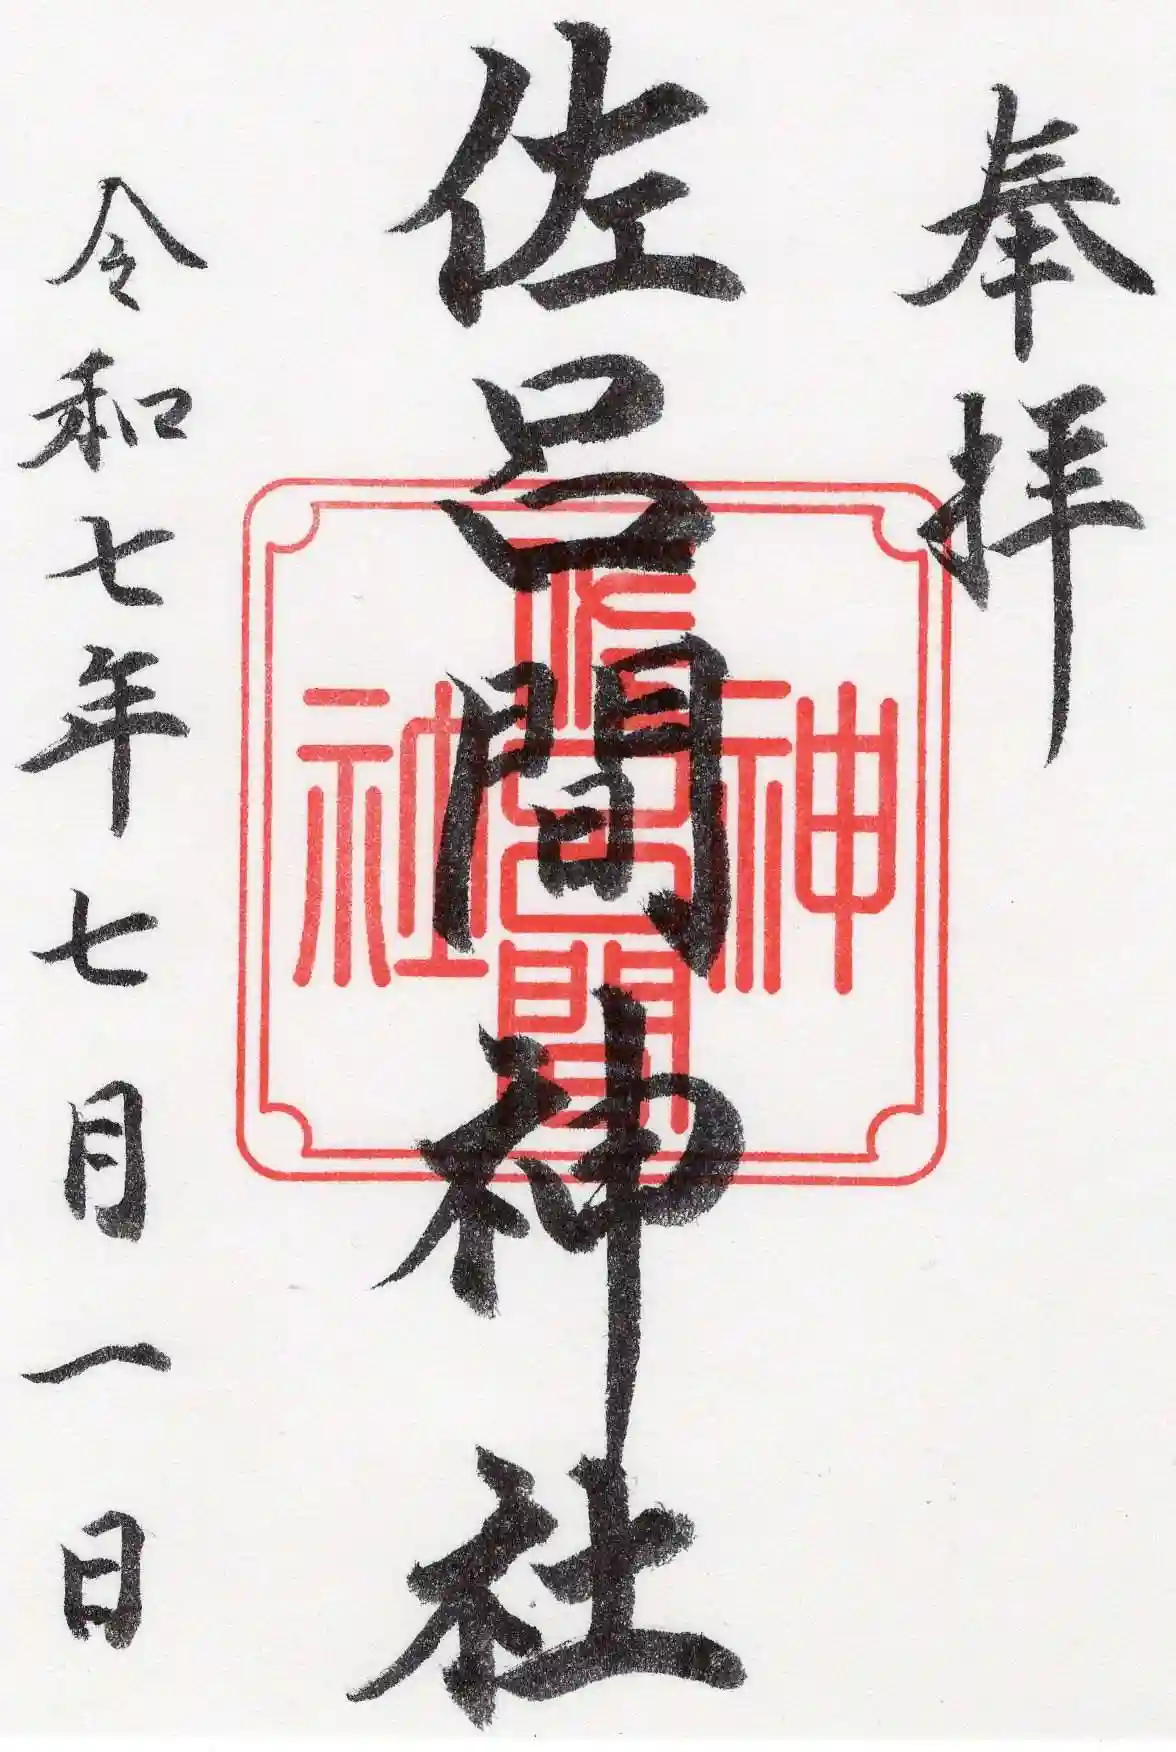 奉拝
佐呂間神社
佐呂間神社
令和七年七月一日